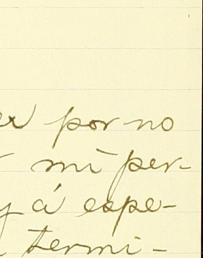 er por no
mi per-
y á espe-
termi-